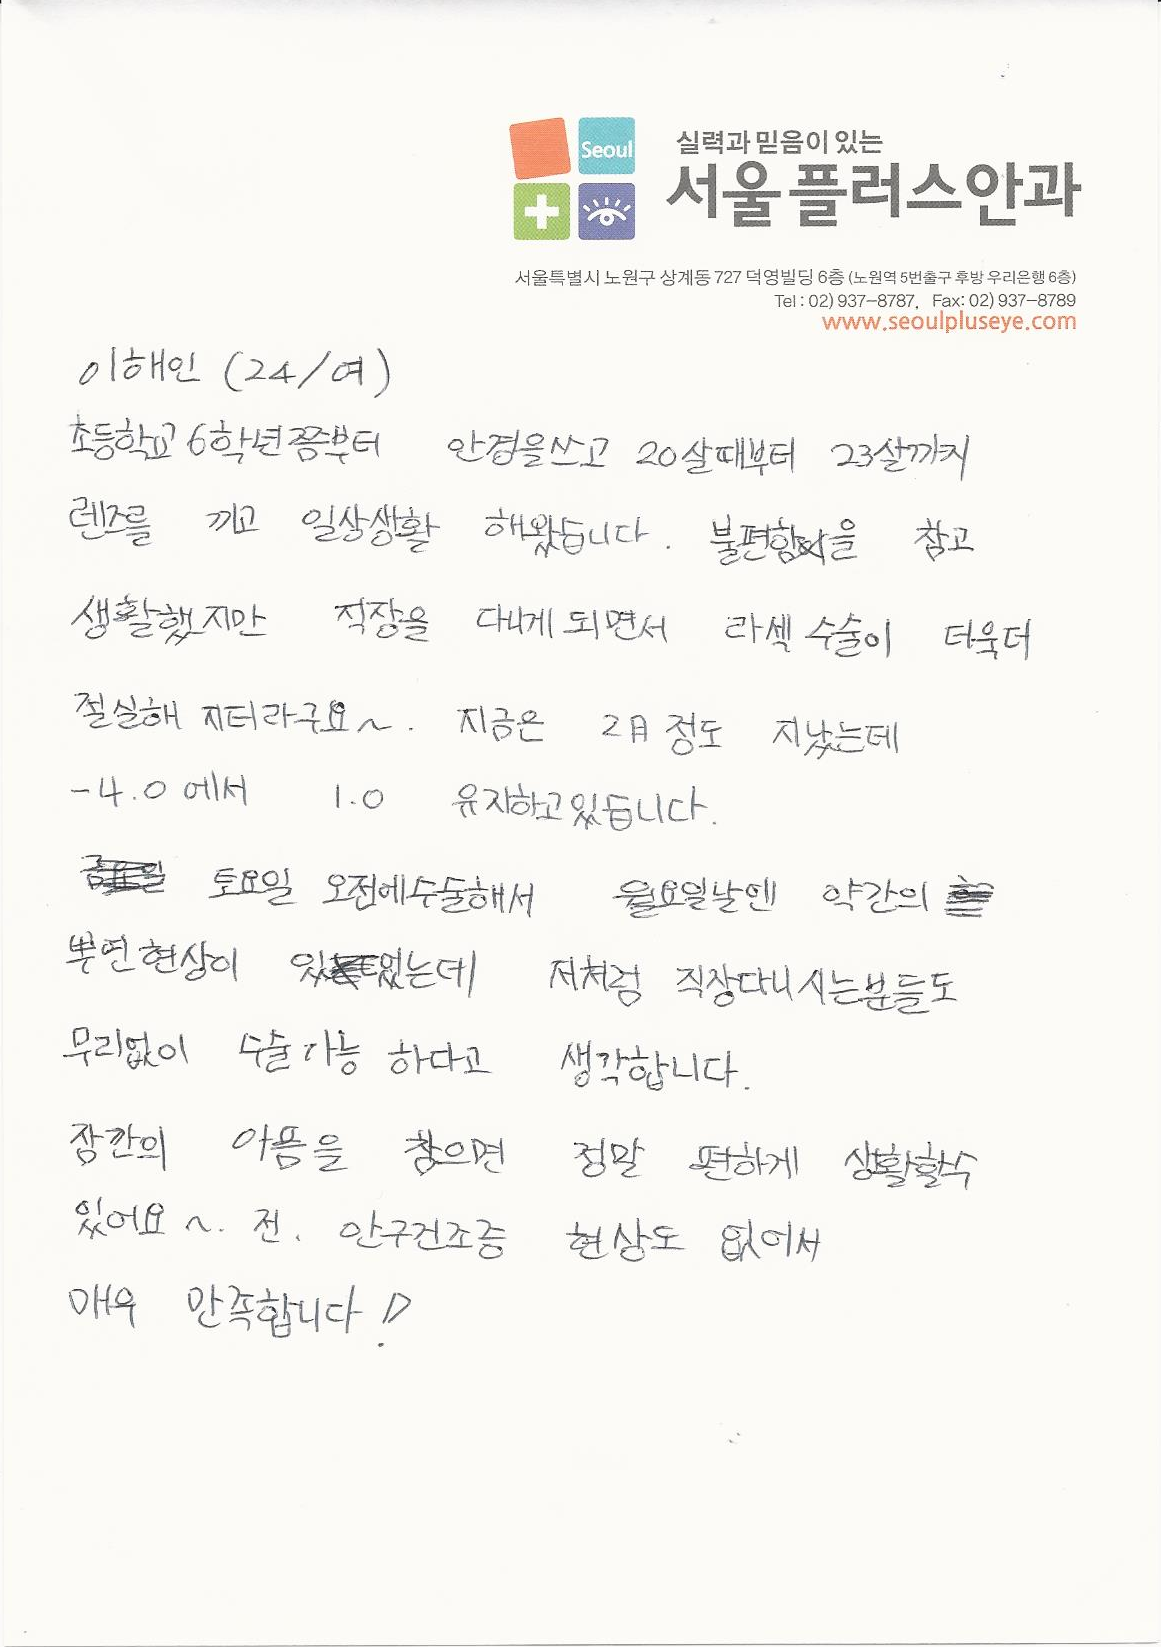 Seoul
실력과 믿음이 있는
서울플러스안과
서울특별시 노원구 상계동 727 덕영빌딩 6층 (노원역 5번출구 후방 우리은행 6층)
Tel : 02) 937-8787, Fax: 02) 937-8789
www.seoulpluseye.com
이해인 (24/여)
초등학교 6학년쯤부터 안경을쓰고 20살때부터 23살까지
렌즈를 끼고 일상생활 해왔습니다. 불편함을 참고
생활했지만 직장을 다니게 되면서 라섹 수술이 더욱더
절실해 지더라구요~. 지금은 2달 정도 지났는데
-4.0 에서 1.0 유지하고있습니다.
토요일 오전에수술해서 월요일날엔 약간의
뿌연현상이 있었는데 저처럼 직장다니시는분들도
무리없이 수술가능 하다고 생각합니다.
잠깐의 아픔을 참으면 정말 편하게 생활할수
있어요~. 전. 안구건조증 현상도 없어서
매우 만족합니다!